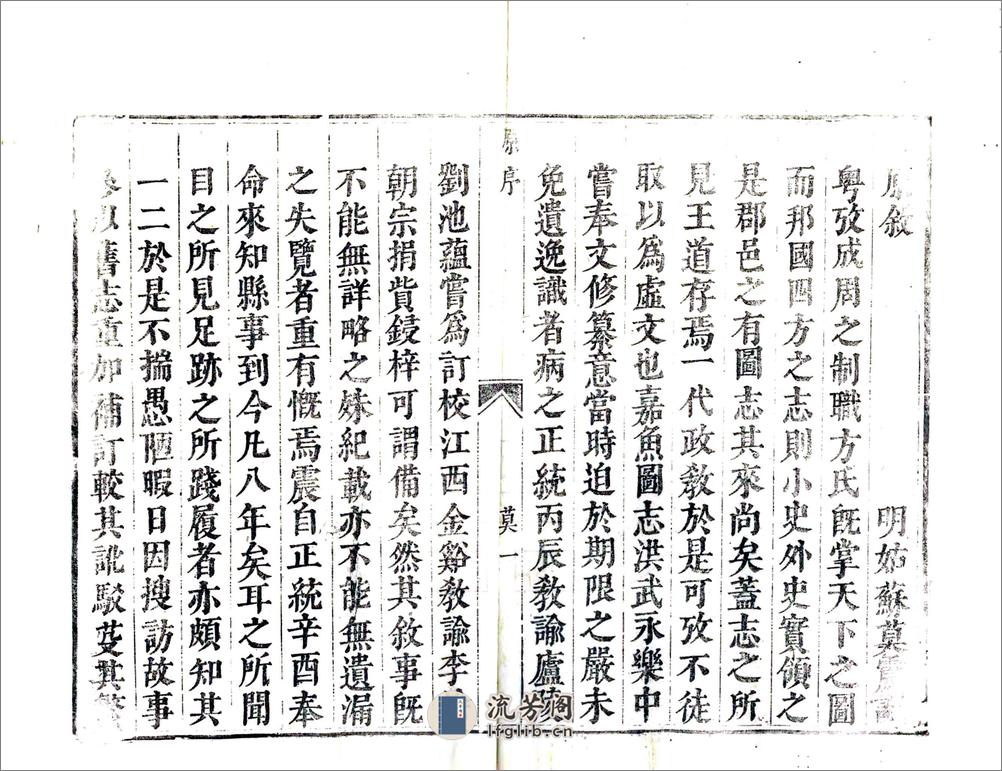 原敘
明姑蘇莫震
粵攷成周之制職方氏旣掌天下之圖
而邦國四方之志則小史外史實領之
是郡邑之有圖志其來尚矣蓋志之所
見王道存焉一代政敎於是可攷不徒
取以為虛文也嘉魚圖志洪武永樂中
嘗奉文修纂意當時迫於期限之嚴未
免遺逸識者病之正統丙辰敎諭廬陵
原序
莫一
劉池蘊嘗為訂校江西金谿敎諭李
朝宗捐貲鋟梓可謂備矣然其敘事旣
不能無詳略之殊紀載亦不能無遺漏
之失覽者重有慨焉震自正統辛酉奉
命來知縣事到今凡八年矣耳之所聞
目之所見足跡之所踐履者亦頗知其
一二於是不揣愚陋暇日因搜訪故事
參以舊志重加補訂較其訛駁芟其繁
流芳閣
lfglib.cn